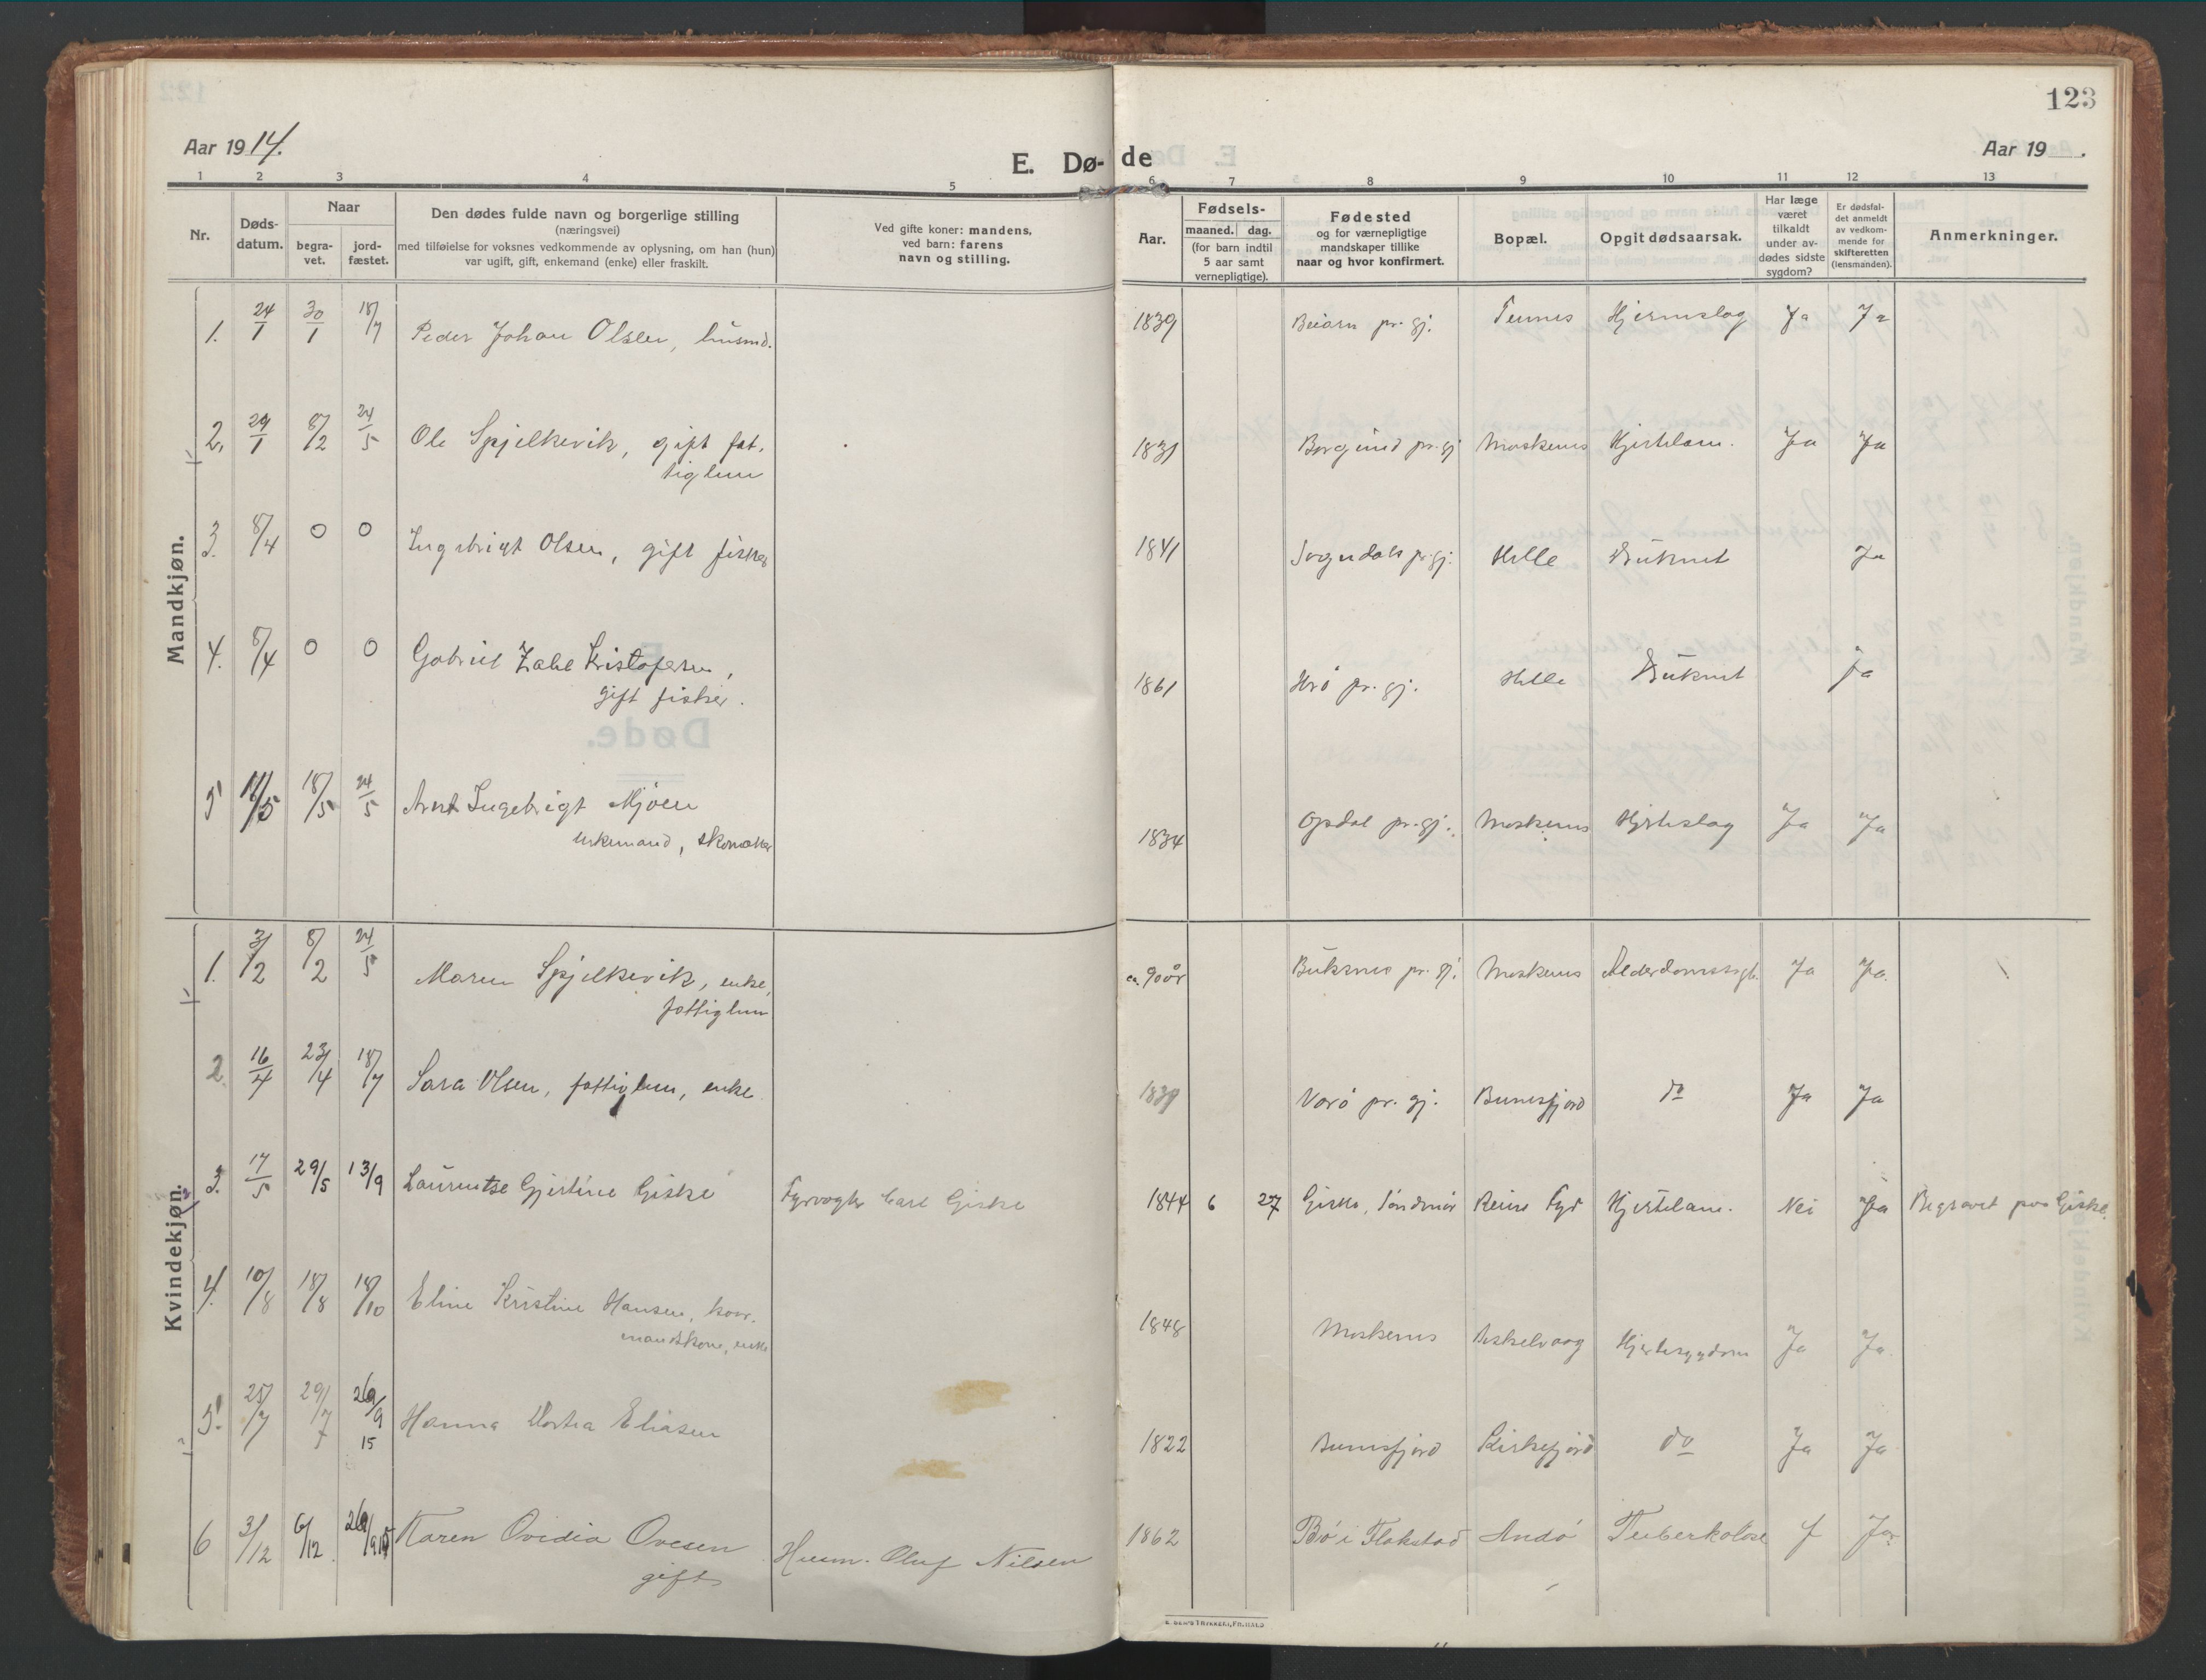 123
Aar 1914.
E. Dø-
de
Aar 19___.
1 2 3 4 5 6 7 8 9 10 11 12 13
Nr.
Døds-
datum.
Naar
begra-
vet.
jord-
fæstet.
Den dødes fulde navn og borgerlige stilling
(næringsvei)
med tilføielse for voksnes vedkommende av oplysning, om han (hun)
var ugift, gift, enkemand (enke) eller fraskilt.
Ved gifte koner: mandens,
ved barn: farens
navn og stilling.
Aar.
Fødsels-
maaned. dag.
(for barn indtil
5 aar samt
vernepligtige).
Fødested
og for værnepligtige
mandskaper tillike
naar og hvor konfirmert.
Bopæl.
Opgit dødsaarsak.
Har læge
været
tilkaldt
under av-
dødes sidste
sygdom?
Er dødsfal-
det anmeldt
av vedkom-
mende for
skifteretten
(lensmanden).
Anmerkninger.
Mandkjøn.
1. 24/1 30/1 18/7 Peder Johan Olsen, husmd. 1839 Beiarn pr. gj. Tennes Hjernslag Ja Ja
2. 29/1 8/2 24/5 Ole Spjelkevik, gift fat- 1831 Borgund pr. gj Moskenes Hjertelam. Ja Ja
tiglem
3. 8/4 0 0 Ingebrigt Olsen, gift fisker 1841 Sogndals pr. gj. Helle Druknet Ja
4. 8/4 0 0 Gabriel Zahl Kristofersen, 1861 Herø pr. gj. Helle Druknet Ja
gift fisker.
5 11/5 18/5 24/5 Arnt Ingebrigt Mjøen 1834 Opdal pr. gj. Moskenes Hjerteslag Ja Ja
enkemand, skomaker
Kvindekjøn.
1. 3/2 8/2 24/5 Maren Spjelkevik, enke, ca. 90 år Buksnes pr. gj. Moskenes Alderdomssygd. Ja Ja.
fattiglem
2. 16/4 23/4 18/7 Sara Olsen, fattiglem, enke. 1839 Værø pr. gj. Bunesfjord do Ja Ja
3. 17/5 29/5 13/9 Laurentse Gjertine Giske Fyrvogter Carl Giske 1844 6 27 Giske, Søndmør Reine Fyr Hjertelam. Nei Ja Begravet paa Giske.
4. 10/8 18/8 18/10 Eline Kristine Hansen, 1848 Moskenes Hjertesygdom Ja Ja.
enke
5. 25/7 29/7 26/9 15 Hanna Dortea Eliasen 1822 Bunesfjord Kirkefjord do Ja Ja
6 3/12 6/12 26/9 15 Karen Ovidia Ovesen Husm. Oluf Nilsen 1862 Bø i Flakstad Andø Tuberkolose Ja
gift